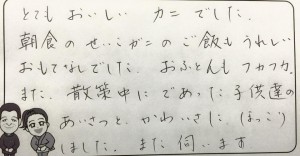 とても おいしい カニ でした。
朝食の せいこガニの ご飯も うれしい
おもてなしでした。 おふとんも フカフカ。
また、散策中に であった 子供達の
あいさつと かわいさに ほっこり
しました。 また 伺います